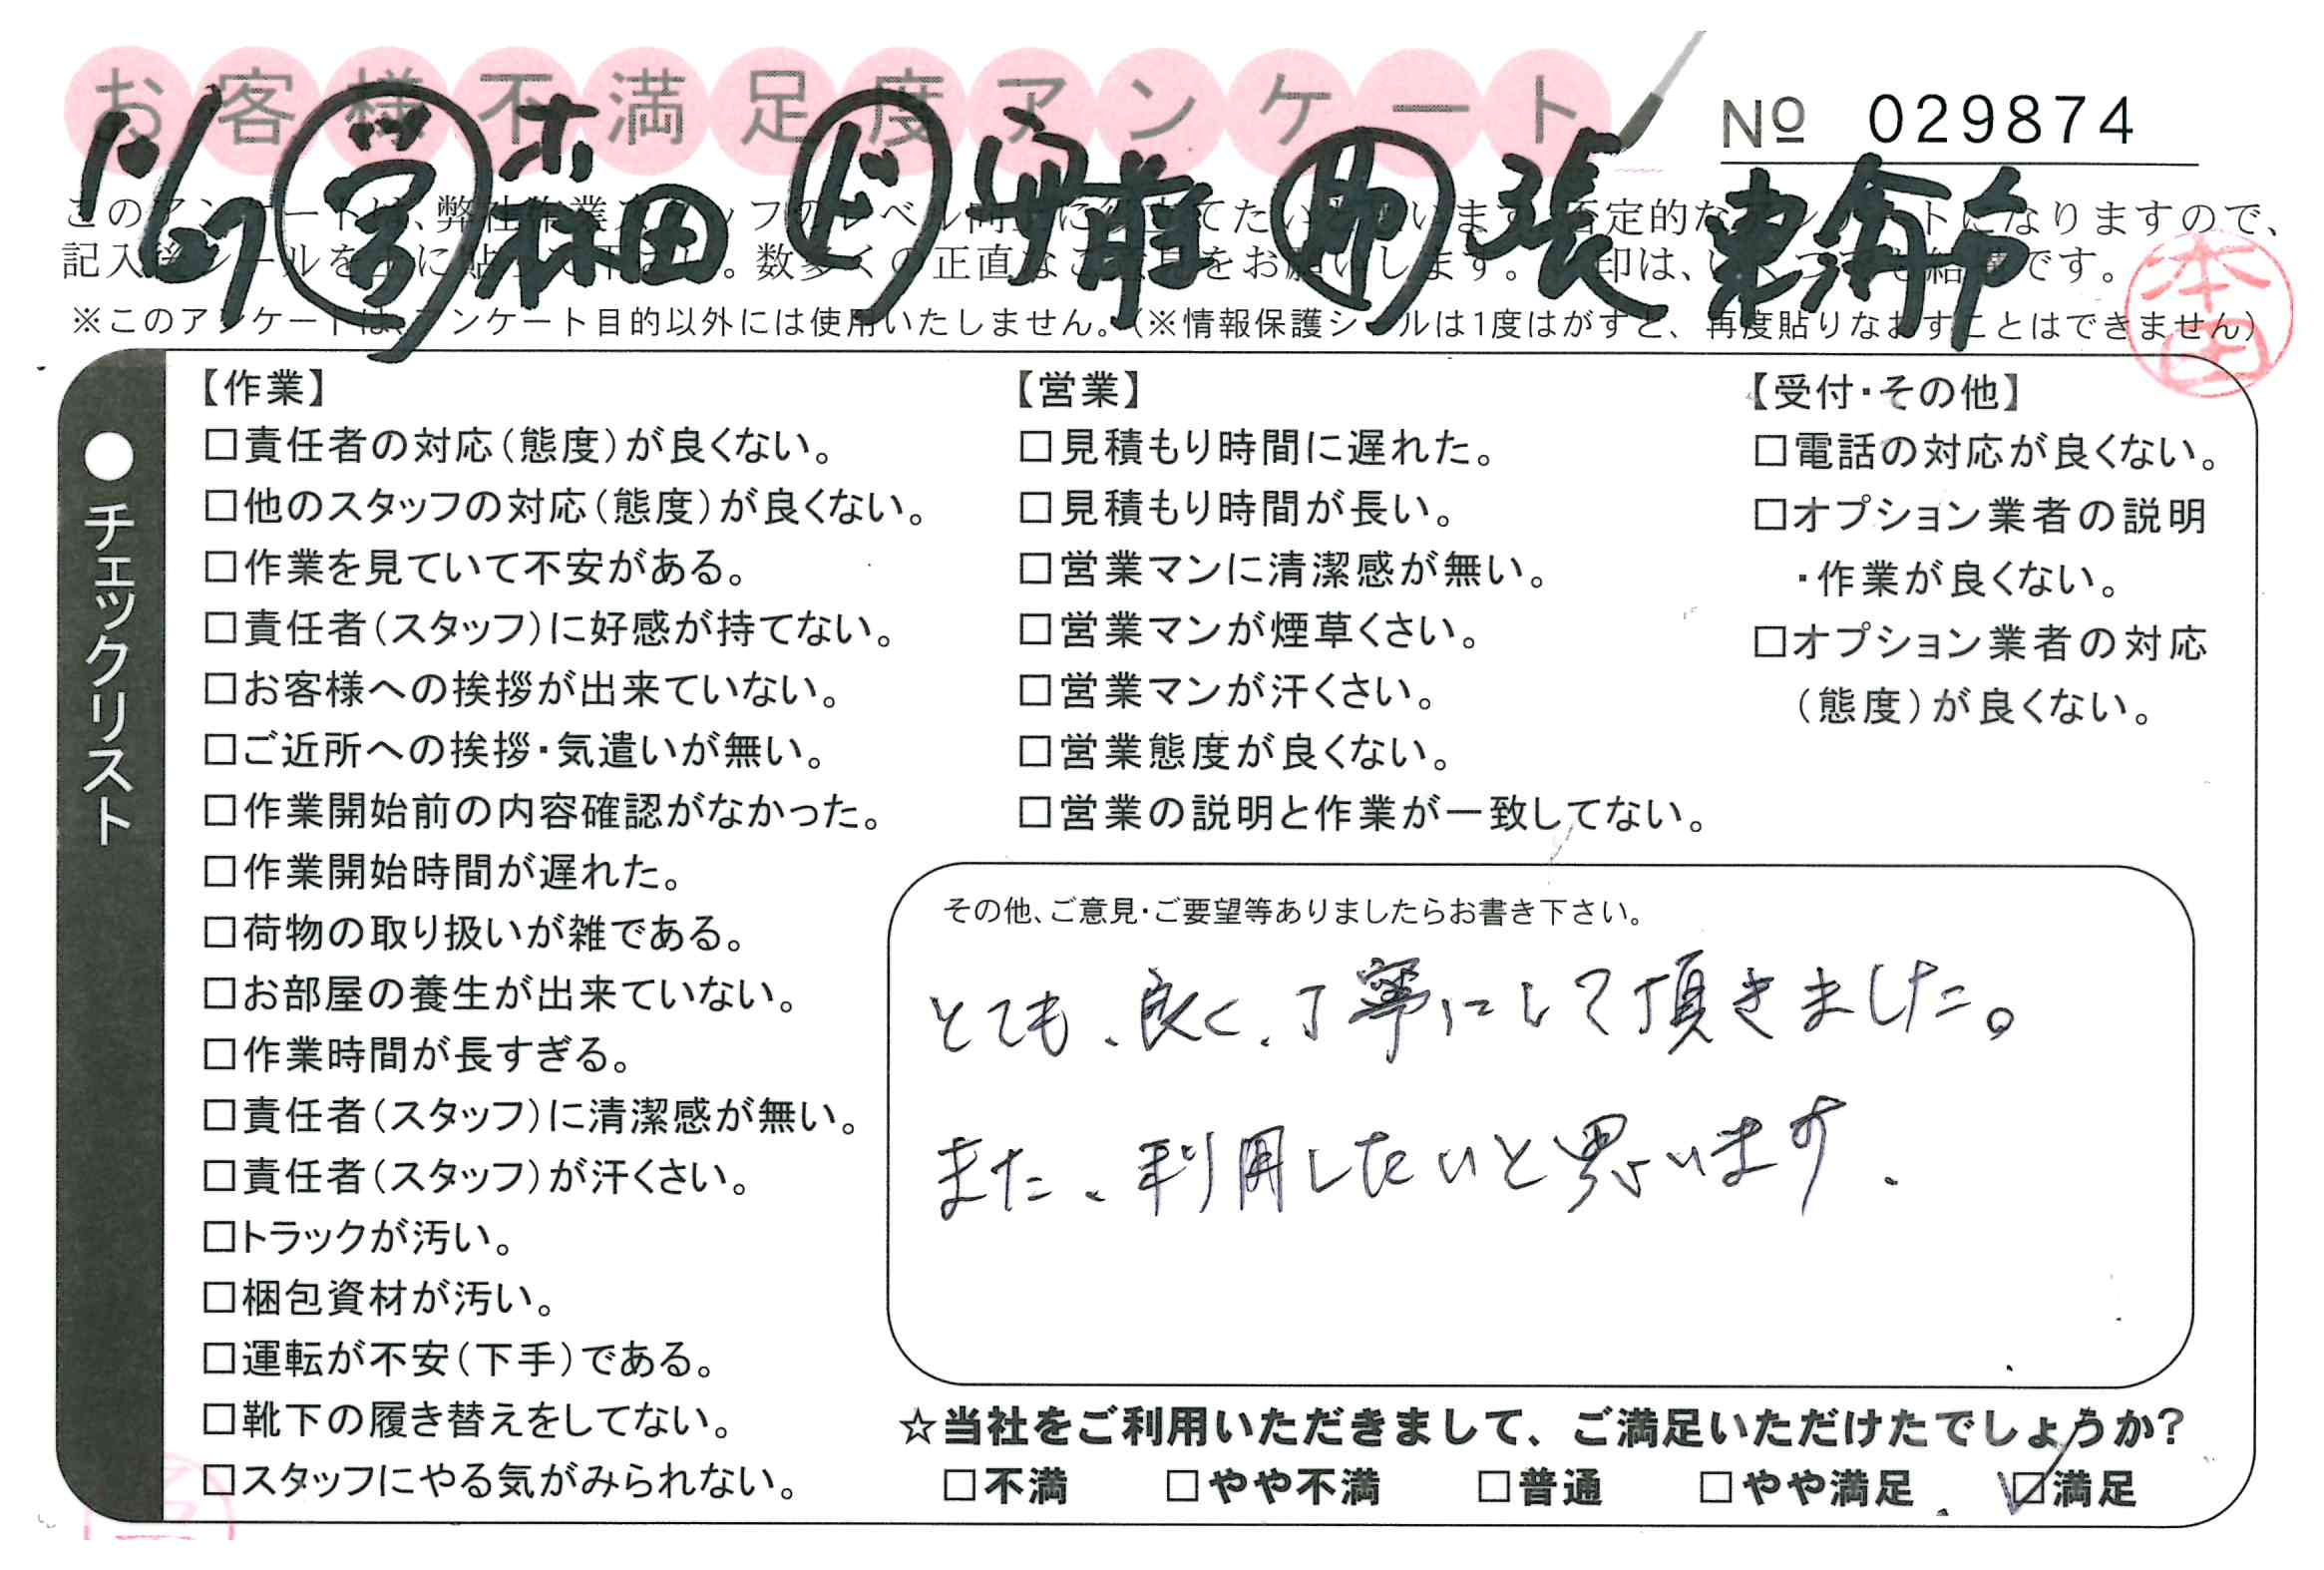 お客様不満足度アンケート
№ 029874
※このアンケートは、アンケート目的以外には使用いたしません。(※情報保護シールは1度はがすと、再度貼りなおすことはできません)
本田
●チェックリスト
【作業】
□責任者の対応(態度)が良くない。
□他のスタッフの対応(態度)が良くない。
□作業を見ていて不安がある。
□責任者(スタッフ)に好感が持てない。
□お客様への挨拶が出来ていない。
□ご近所への挨拶・気遣いが無い。
□作業開始前の内容確認がなかった。
□作業開始時間が遅れた。
□荷物の取り扱いが雑である。
□お部屋の養生が出来ていない。
□作業時間が長すぎる。
□責任者(スタッフ)に清潔感が無い。
□責任者(スタッフ)が汗くさい。
□トラックが汚い。
□梱包資材が汚い。
□運転が不安(下手)である。
□靴下の履き替えをしてない。
□スタッフにやる気がみられない。
【営業】
□見積もり時間に遅れた。
□見積もり時間が長い。
□営業マンに清潔感が無い。
□営業マンが煙草くさい。
□営業マンが汗くさい。
□営業態度が良くない。
□営業の説明と作業が一致してない。
【受付・その他】
□電話の対応が良くない。
□オプション業者の説明
・作業が良くない。
□オプション業者の対応
(態度)が良くない。
その他、ご意見・ご要望等ありましたらお書き下さい。
とても、良く、丁寧にして頂きました。
また、利用したいと思います.
☆当社をご利用いただきまして、ご満足いただけたでしょうか?
□不満 □やや不満 □普通 □やや満足 ☑満足